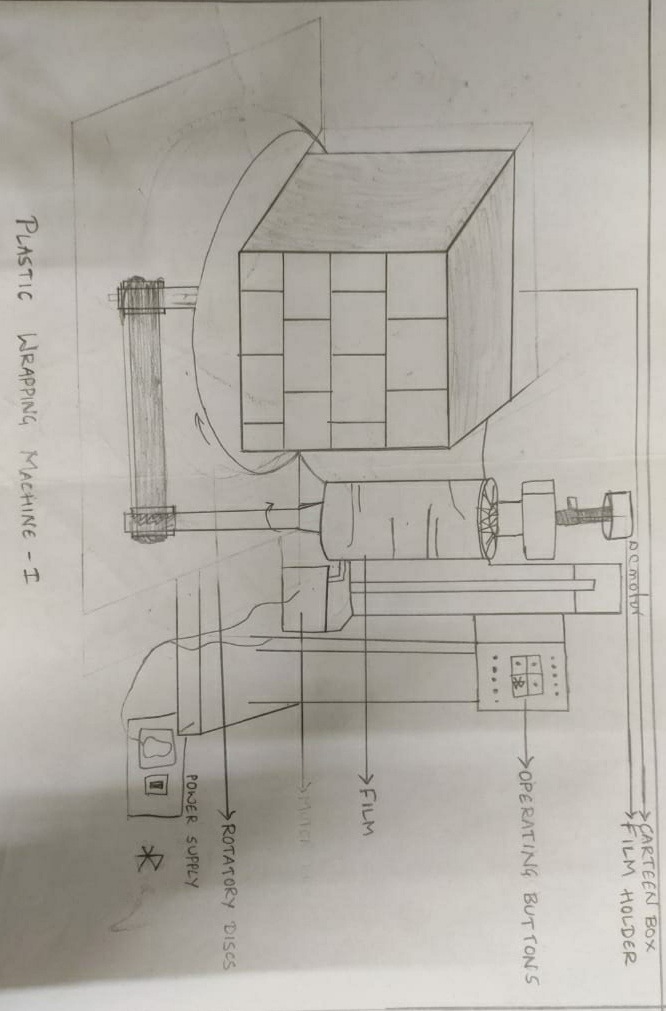 CARTEEN BOX
DC motor
FILM HOLDER
OPERATING BUTTONS
FILM
ROTATORY DISCS
POWER SUPPLY
PLASTIC WRAPPING MACHINE - I